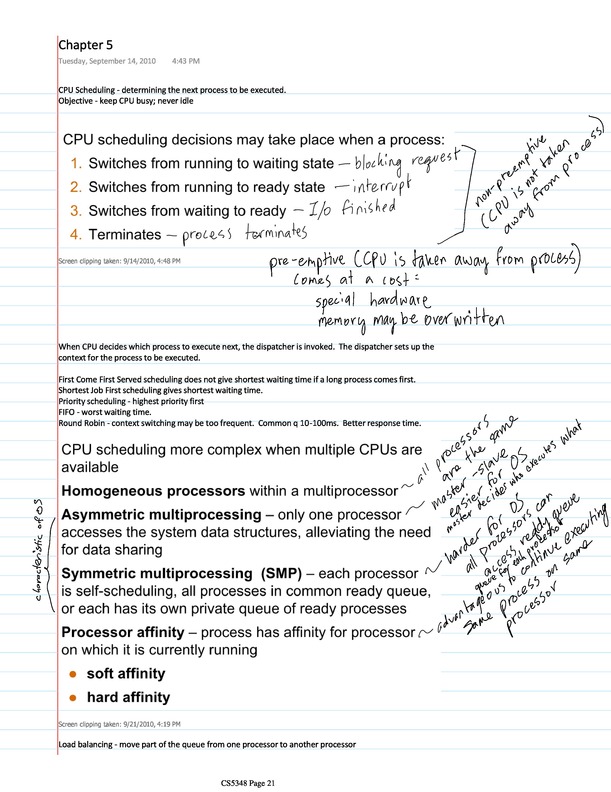 Chapter 5
Tuesday, September 14, 2010 4:43 PM
CPU Scheduling - determining the next process to be executed.
Objective - keep CPU busy; never idle
CPU scheduling decisions may take place when a process:
1. Switches from running to waiting state – blocking request
2. Switches from running to ready state – interrupt
3. Switches from waiting to ready – I/o finished
4. Terminates – process terminates
non-preemptive
(CPU is not taken
away from process)
Screen clipping taken: 9/14/2010, 4:48 PM
pre-emptive (CPU is taken away from process)
comes at a cost:
special hardware
memory may be overwritten
When CPU decides which process to execute next, the dispatcher is invoked. The dispatcher sets up the
context for the process to be executed.
First Come First Served scheduling does not give shortest waiting time if a long process comes first.
Shortest Job First scheduling gives shortest waiting time.
Priority scheduling - highest priority first
FIFO - worst waiting time.
Round Robin - context switching may be too frequent. Common q 10-100ms. Better response time.
CPU scheduling more complex when multiple CPUs are
available
Homogeneous processors within a multiprocessor
all processors
are the same
Asymmetric multiprocessing – only one processor
accesses the system data structures, alleviating the need
for data sharing
master-slave
easier for OS
master decides who executes what
Symmetric multiprocessing (SMP) – each processor
is self-scheduling, all processes in common ready queue,
or each has its own private queue of ready processes
harder for OS
all processors can
access ready queue
queue for each processor
characteristic of OS
Processor affinity – process has affinity for processor
on which it is currently running
advantageous to continue executing
same process on same
processor
• soft affinity
• hard affinity
Screen clipping taken: 9/21/2010, 4:19 PM
Load balancing - move part of the queue from one processor to another processor
CS5348 Page 21